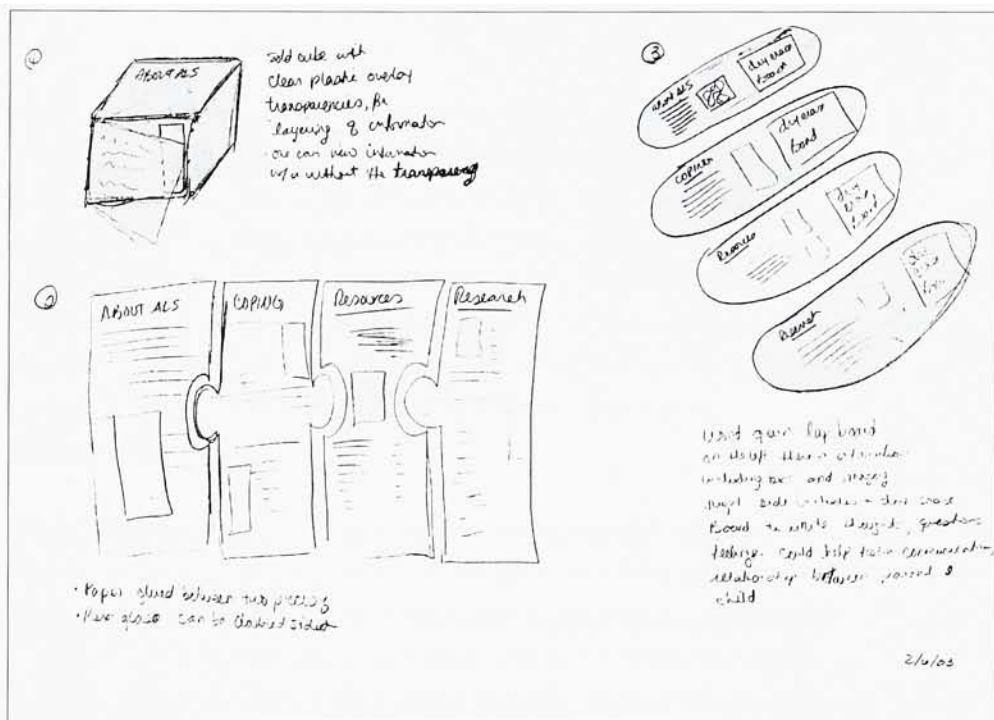 ①
ABOUT ALS
Solid cube with
clear plastic overlay
transparencies, for
layering of information
one can view information
w/or without the transparency
②
ABOUT ALS
COPING
Resources
Research
• Paper glued between two pieces
• can be
③
About ALS
dry erase
board
COPING
dry erase
board
Resources
dry
erase
board
Research
dry
erase
board
lap board
on the left there is information
including and imagery
right side includes a dry erase
Board to write thought, questions
feelings. Could help with communication,
relationship between parent &
child
2/6/03